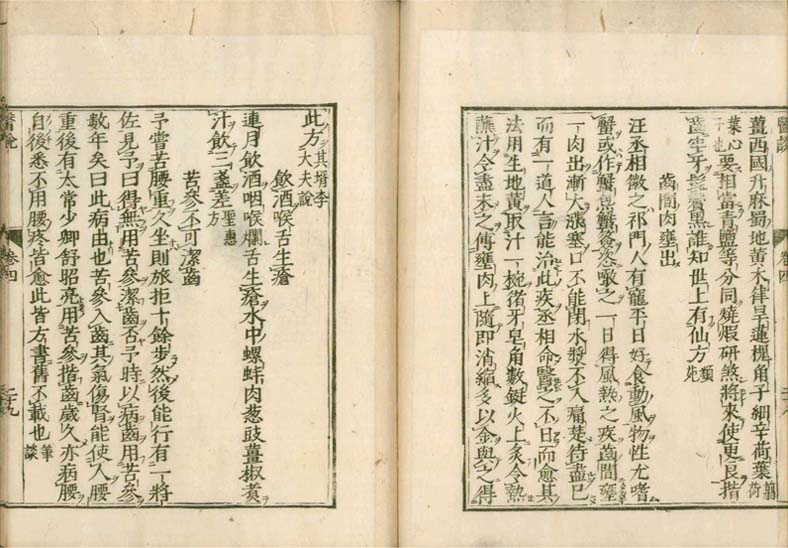 醫說
薑西國升麻蜀地黃木律旱蓮槐角子細辛荷葉剪荷
葉心子也要相當青鹽等分同燒煆研煞將來使更良揩
齒牢牙髭鬢黑誰知世上有仙方類先
齒間肉壅出
汪丞相徹之祁門人有寵平日好食動風物性尤嗜
蟹或作蟹𩱃蟹羹恣噉之一日得風熱之疾齒間壅
一肉出漸大漲塞口不能閉水漿不入痛楚待盡已
而有一道人言能治此疾丞相命醫之不日而愈其
法用生地黃取汁一椀猪牙皂角數鋌火上炙令熱
蘸汁令盡末之傅壅肉上隨即消縮多以金與之得
卷四
二十八
此方其壻李大夫說
飲酒喉舌生瘡
連月飲酒咽喉爛舌生瘡水中螺蚌肉葱豉薑椒煑
汁飲三盞差聖惠方
苦參不可潔齒
予嘗苦腰重久坐則旅拒十餘步然後能行有一將
佐見予曰得無用苦參潔齒否予時以病齒用苦參
数年矣曰此病由也苦參入齒其氣傷腎能使人腰
重後有太常少卿舒昭亮用苦參揩齒歲久亦病腰
自後悉不用腰疼皆愈此皆方書舊不載也筆談
醫說
卷四
二十九